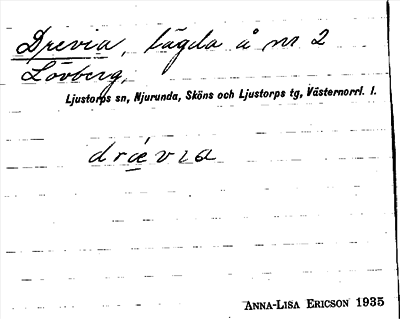 Drevia, lägda å nr 2
Lövberg,
Ljustorps sn, Njurunda, Sköns och Ljustorps tg, Västernorrl. l.
drævia
ANNA-LISA ERICSON 1935